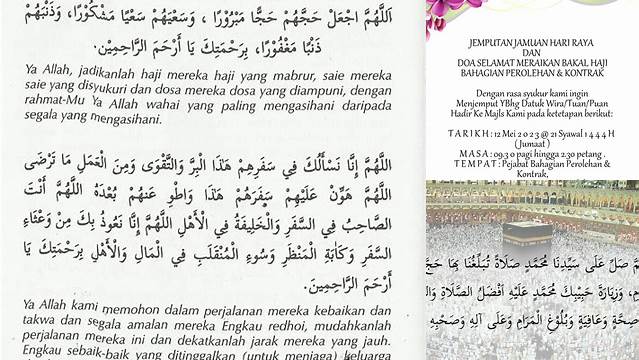 اَللَّهُمَّ اجْعَلْ حَجَّهُمْ حَجًّا مَبْرُورًا ، وَسَعْيَهُمْ سَعْيًا مَشْكُورًا، وَذَنْبَهُمْ
ذَنْبًا مَغْفُورًا، بِرَحْمَتِكَ يَا أَرْحَمَ الرَّاحِمِيْنَ.
Ya Allah, jadikanlah haji mereka haji yang mabrur, saie mereka
saie yang disyukuri dan dosa mereka dosa yang diampuni, dengan
rahmat-Mu Ya Allah wahai yang paling mengasihani daripada
segala yang mengasihani.
اللَّهُمَّ إِنَّا نَسْأَلُكَ فِي سَفَرِهِمْ هَٰذَا الْبِرَّ وَالتَّقْوَى وَمِنَ الْعَمَلِ مَا تَرْضَى
اللَّهُمَّ هَوِّنْ عَلَيْهِمْ سَفَرَهُمْ هَٰذَا وَاطْوِ عَنْهُمْ بُعْدَهُ اللَّهُمَّ أَنْتَ
الصَّاحِبُ فِي السَّفَرِ وَالْخَلِيفَةُ فِي الْأَهْلِ اللَّهُمَّ إِنَّا نَعُوذُ بِكَ مِنْ وَعْثَاءِ
السَّفَرِ وَكَآبَةِ الْمَنْظَرِ وَسُوءِ الْمُنْقَلَبِ فِي الْمَالِ وَالْأَهْلِ بِرَحْمَتِكَ يَا
أَرْحَمَ الرَّاحِمِيْنَ.
Ya Allah kami memohon dalam perjalanan mereka kebaikan dan
takwa dan segala amalan mereka Engkau redhoi, mudahkanlah
perjalanan mereka ini dan dekatkanlah jarak mereka yang jauh.
Engkau sebaik-baik yang ditinggalkan (untuk menjaga) keluarga
JEMPUTAN JAMUAN HARI RAYA
DAN
DOA SELAMAT MERAIKAN BAKAL HAJI
BAHAGIAN PEROLEHAN & KONTRAK
Dengan rasa syukur kami ingin
Menjemput YBhg Datuk Wira/Tuan/Puan
Hadir Ke Majls Kami pada ketetapan berikut:
T A R I K H : 12 Mei 2 0 2 3 @ 21 Syawal 1 4 4 4 H
(Jumaat )
M A S A : 09.30 pagi hingga 2.30 petang .
T E M P A T : Pejabat Bahagian Perolehan &
Kontrak,
مَّ صَلِّ عَلَى سَيِّدِنَا مُحَمَّدٍ صَلَاةً تُبَلِّغُنَا بِهَا حَجَّ
مِ، وَزِيَارَةَ حَبِيبِكَ مُحَمَّدٍ عَلَيْهِ أَفْضَلُ الصَّلَاةِ وَال
صِحَّةٍ وَعَافِيَةٍ وَبُلُوْغِ الْمَرَامِ وَعَلَى آلِهِ وَصَحْبِهِ